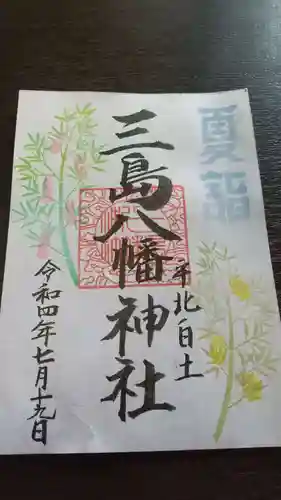 夏詣
三島八幡神社
平北白土
令和四年七月十九日